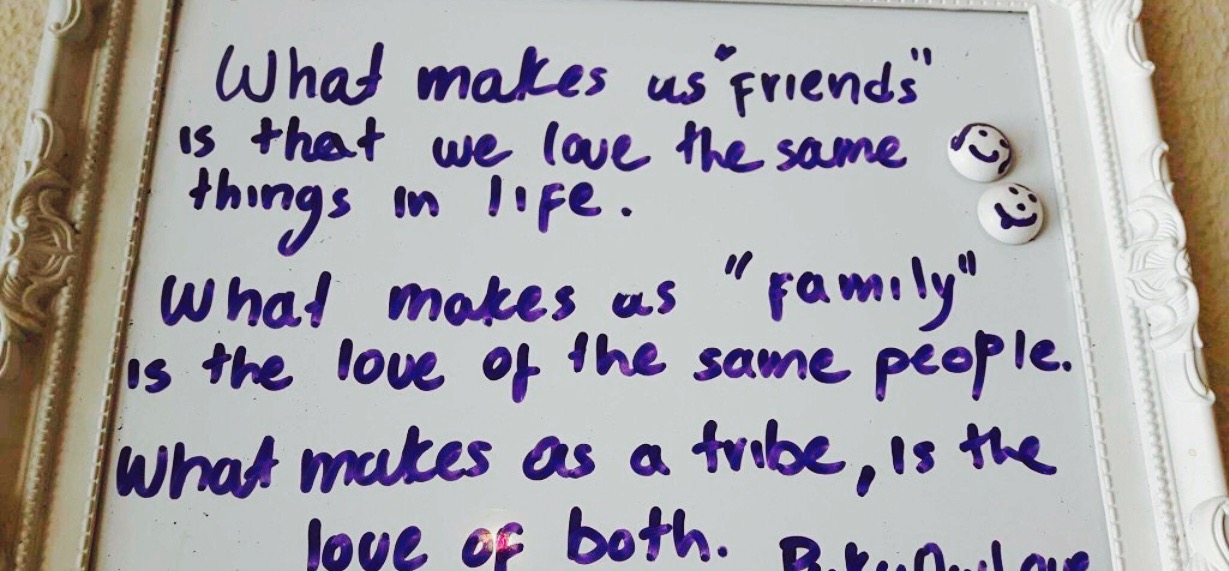 What makes us "friends"
is that we love the same
things in life.
What makes as "family"
is the love of the same people.
What makes as a tribe, is the
love of both.